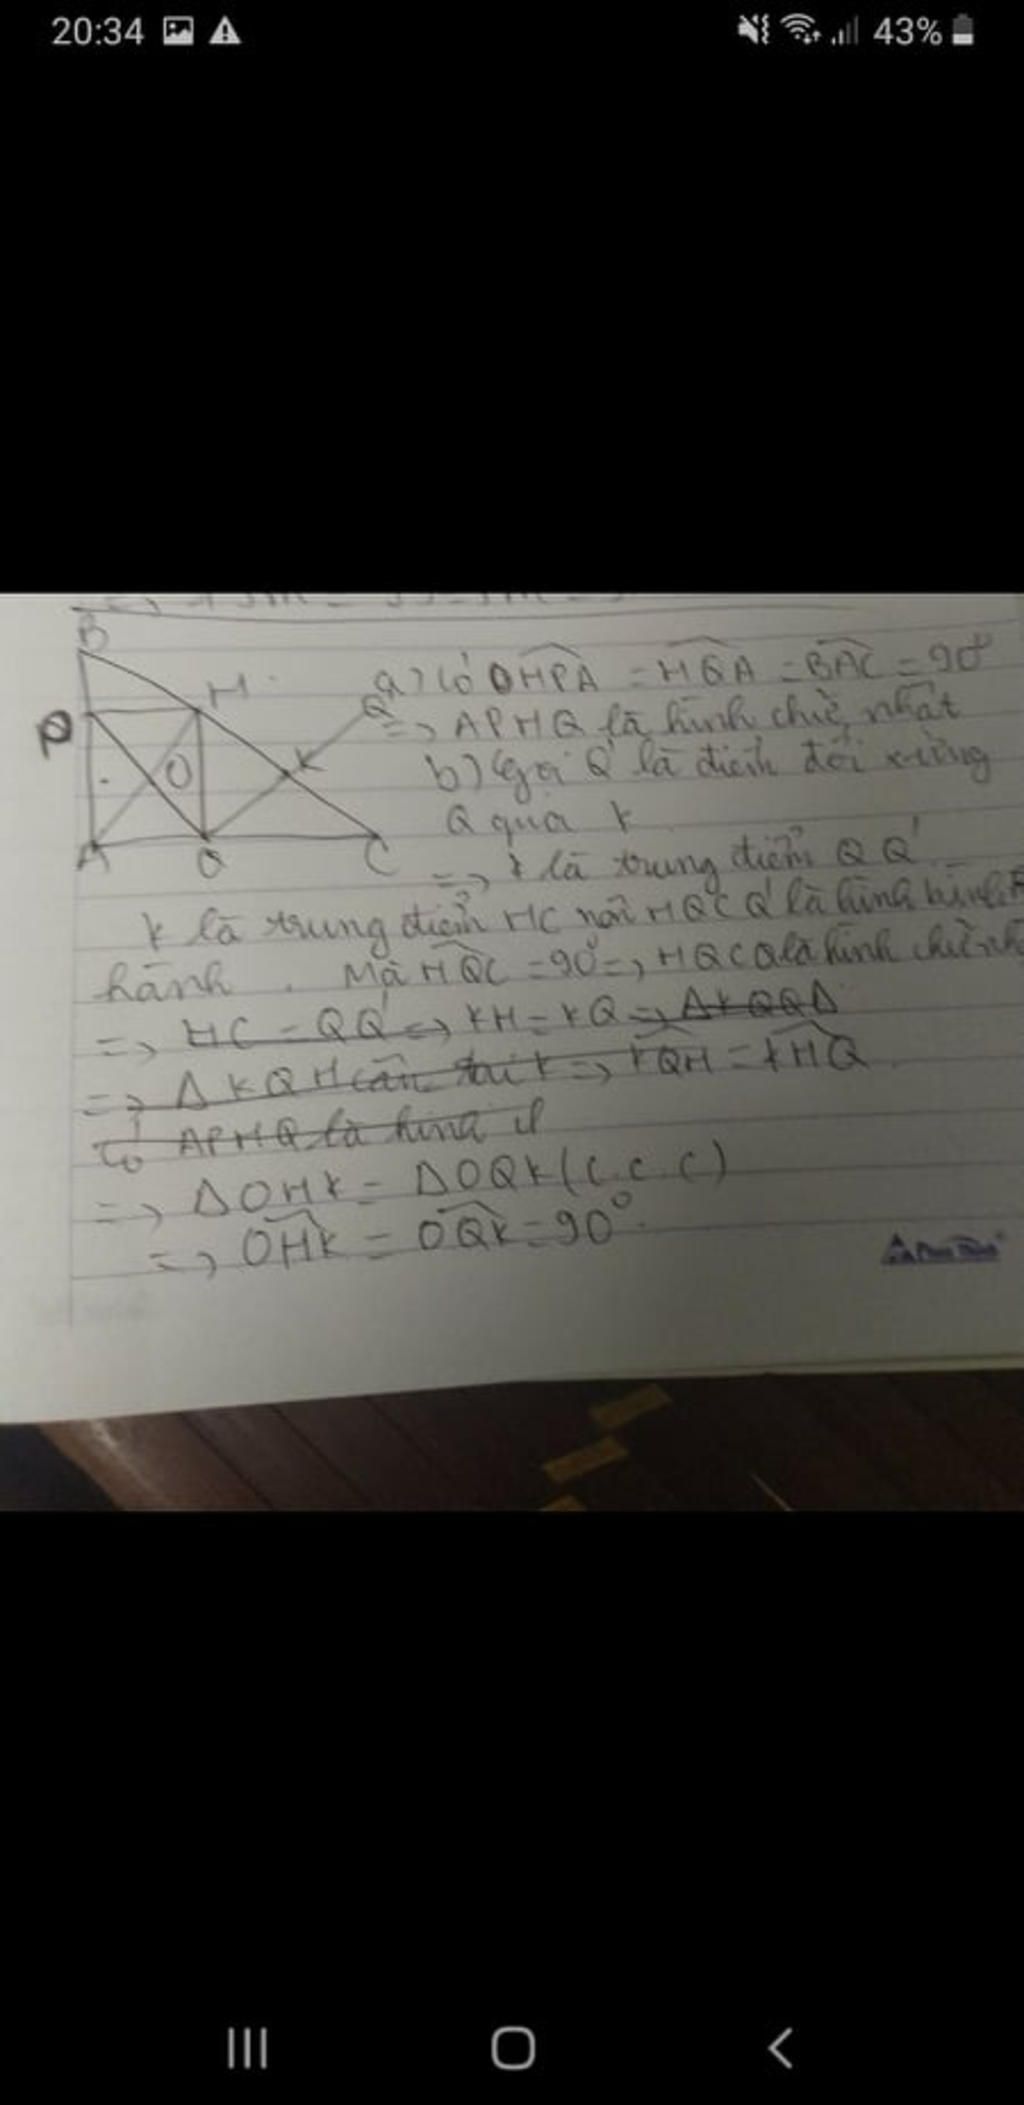 20:34 43%
B
H
P
Q'
K
O
A
Q
C
a) Có HPA = HQA = BAC = 90°
=> APHQ là hình chữ nhật
b) Gọi Q' là điểm đối xứng
Q qua K
=> K là trung điểm QQ'
K là trung điểm HC nên HQCQ' là hình bình
hành. Mà HQC = 90° => HQCQ' là hình chữ nh
=> HC = QQ' => KH = KQ => ΔKQQΔ
=> ΔKQH cân tại K => KQH = KHQ
Có APHQ là hình
=> ΔOHK = ΔOQK (c.c.c)
=> OHK = OQK = 90°.